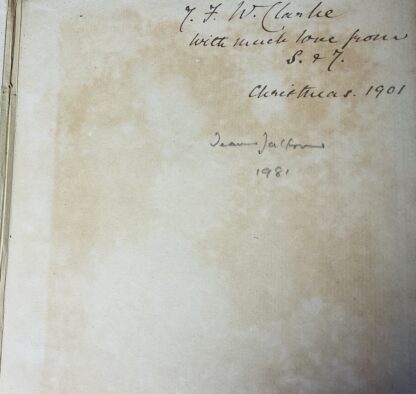 J. F. W. Clarke
with much love from
S. & J.
Christmas. 1901
Jean
1981